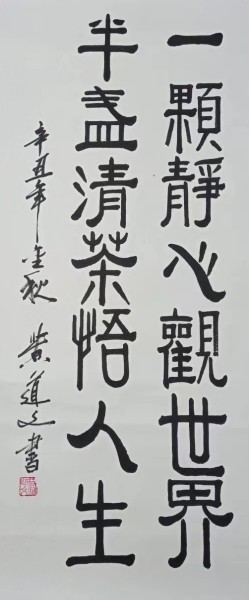 一顆靜心觀世界
半盞清茶悟人生
辛丑年金秋 黄道之書